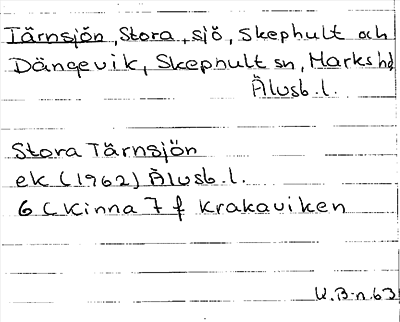 Tärnsjön, Stora, sjö, Skephult och
Dängevik, Skephult sn, Marks hd
Älvsb.l.
Stora Tärnsjön
ek (1962) Älvsb.l.
6 C Kinna 7 f Krakaviken
U.B-n.63